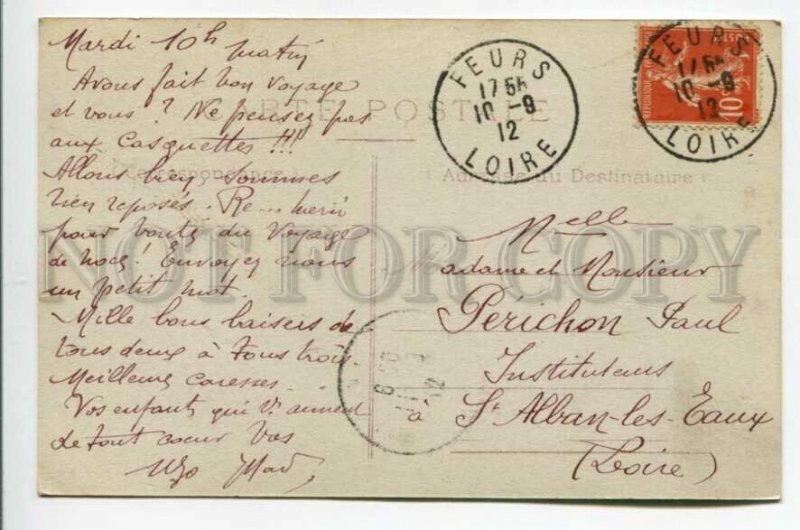 Mardi 10h matin
Avons fait bon voyage
et vous ? Ne pensez pas
aux casquettes !!!
Allons bien, sommes
bien reposés. Re... merci
pour bonté du voyage
de noce ! Envoyez nous
un petit mot.
Mille bons baisers de
tous deux à tous trois.
Meilleures caresses
Vos enfants qui vs aiment
de tout coeur Vos
CARTE POSTALE
Correspondance
Adresse du Destinataire
FEURS
17 55
10 - 9
12
LOIRE
FEURS
17 55
10 - 9
12
LOIRE
10
Melle
Madame et Monsieur
Périchon Paul
Instituteurs
à St Alban-les-Eaux
(Loire)
NOT FOR COPY